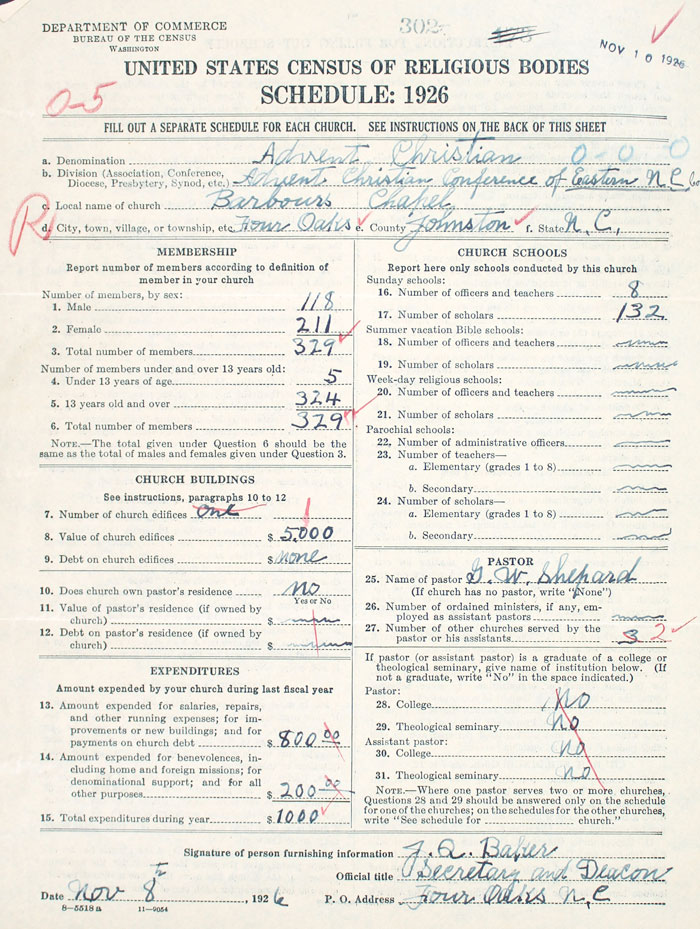 DEPARTMENT OF COMMERCE
BUREAU OF THE CENSUS
WASHINGTON
302
NOV 10 1926
UNITED STATES CENSUS OF RELIGIOUS BODIES
SCHEDULE: 1926
0-5
FILL OUT A SEPARATE SCHEDULE FOR EACH CHURCH. SEE INSTRUCTIONS ON THE BACK OF THIS SHEET
a. Denomination Advent Christian 0-0-0
b. Division (Association, Conference, Diocese, Presbytery, Synod, etc.) Advent Christian Conference of Eastern N.C.
c. Local name of church Barbours Chapel
R
d. City, town, village, or township, etc. Four Oaks e. County Johnston f. State N.C.,
MEMBERSHIP
Report number of members according to definition of
member in your church
Number of members, by sex:
1. Male 118
2. Female 211
3. Total number of members 329
Number of members under and over 13 years old:
4. Under 13 years of age 5
5. 13 years old and over 324
6. Total number of members 329
NOTE.—The total given under Question 6 should be
same as the total of males and females given under Question 3.
CHURCH BUILDINGS
See instructions, paragraphs 10 to 12
7. Number of church edifices One 1
8. Value of church edifices $ 5,000
9. Debt on church edifices $ none
10. Does church own pastor's residence no
Yes or No
11. Value of pastor's residence (if owned by
church) $
12. Debt on pastor's residence (if owned by
church) $
EXPENDITURES
Amount expended by your church during last fiscal year
13. Amount expended for salaries, repairs,
and other running expenses; for im-
provements or new buildings; and for
payments on church debt $ 800.00
14. Amount expended for benevolences, in-
cluding home and foreign missions; for
denominational support; and for all
other purposes $ 200.00
15. Total expenditures during year $ 1000
CHURCH SCHOOLS
Report here only schools conducted by this church
Sunday schools:
16. Number of officers and teachers 8
17. Number of scholars 132
Summer vacation Bible schools:
18. Number of officers and teachers
19. Number of scholars
Week-day religious schools:
20. Number of officers and teachers
21. Number of scholars
Parochial schools:
22. Number of administrative officers
23. Number of teachers—
a. Elementary (grades 1 to 8)
b. Secondary
24. Number of scholars—
a. Elementary (grades 1 to 8)
b. Secondary
PASTOR
25. Name of pastor G. W. Shepard
(If church has no pastor, write "None")
26. Number of ordained ministers, if any, em-
ployed as assistant pastors
27. Number of other churches served by the
pastor or his assistants 3 2
If pastor (or assistant pastor) is a graduate of a college or
theological seminary, give name of institution below. (If
not a graduate, write "No" in the space indicated.)
Pastor:
28. College No
29. Theological seminary No
Assistant pastor:
30. College No
31. Theological seminary No
NOTE.—Where one pastor serves two or more churches,
Questions 28 and 29 should be answered only on the schedule
for one of the churches; on the schedules for the other churches,
write "See schedule for church."
Signature of person furnishing information J. Q. Baker
Official title Secretary and Deacon
Date Nov 8, 1926 P. O. Address Four Oaks N.C
8-5518 a 11-9054